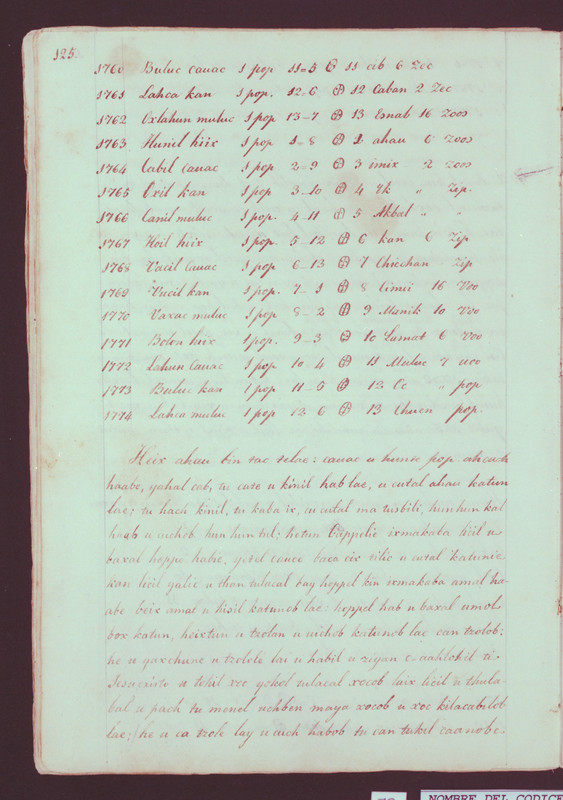 125.
1760 Buluc cauac 1 pop 11=5 ⊕ 11 cib 6 Zec
1761 Lahca kan 1 pop. 12=6 ⊕ 12 Caban 2 Zec
1762 Oxlahun muluc 1 pop 13-7 ⊕ 13 Esnab 16 zoos
1763 Hunil hiix 1 pop 1=8 ⊕ 1 ahau 6 zoos
1764 Cabil Cauac 1 pop 2=9 ⊕ 3 imix 2 zoos
1765 Oxil kan 1 pop 3-10 ⊕ 4 Yk " Zip.
1766 Canil muluc 1 pop. 4-11 ⊕ 5 Akbal " "
1767 Hoil hiix 1 pop. 5-12 ⊕ 6 kan 6 Zip
1768 Vacil Cauac 1 pop 6-13 ⊕ 7 Chicchan Zip
1769 Vucil kan 1 pop. 7-1 ⊕ 8 Cimei 16 Voo
1770 Vaxac muluc 1 pop 8-2 ⊕ 9 Manik 10 Voo
1771 Bolon hiix 1 pop. 9-3 ⊕ 10 Lamat 6 Voo
1772 Lahun Cauac 1 pop 10-4 ⊕ 11 Muluc 7 uoo
1773 Buluc kan 1 pop 11-5 ⊕ 12 Oc " pop
1774 Lahca muluc 1 pop 12 6 ⊕ 13 Chuen pop.
Heix ahau bin tac telae: cauac u hunte pop ah cuch
haabe, yahal cab, tu cate u kinil hab lae, u cutal ahau katun
lae; tu hach kinil, tu kaba ix, u cutal ma tusbili, hun hun kal
haab u uicheb hun hun tul; hetun cappelie ixmakaba licil u
baxal hoppo habe, yetel cauce baca cix uilic u cutal katunie
kan licil yalic u than tulacal bay hoppel kin ixmakaba amal ha-
abe beix amal u hisil katunob lae: hoppel hab u baxal u mol
box katun, heixtun u tzolan u uichob katunob lae can tzolob:
he u yaxchunc u tzolole lai u habil u ziyan c-aahlohil ti
Jesucristo u tehil xoc yokol tulacal xocob laix licil u thula-
bal u pach tu monol uchben maya xocob u xoc kilacabilob
lae; he u ca tzole lay u cuch habob tu can tukil caanobe-
NOMBRE DEL CODICE